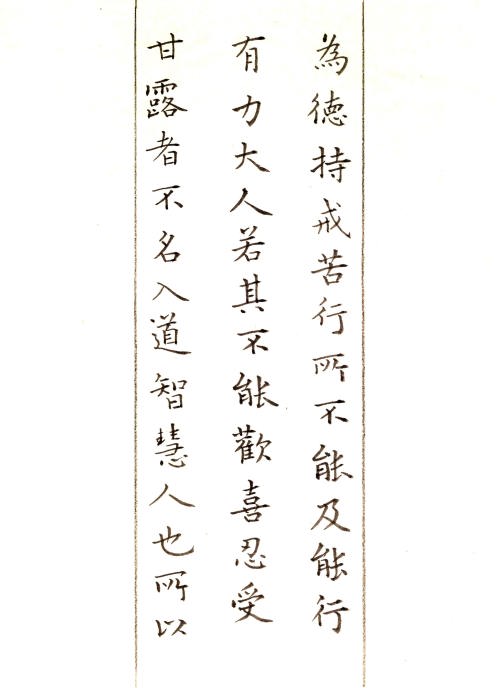 為徳持戒苦行所不能及能行
有力大人若其不能歡喜忍受
甘露者不名入道智慧人也所以